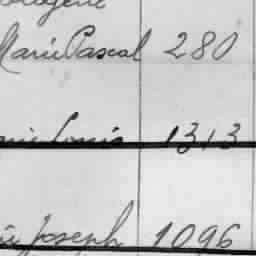 Marie Pascal 280
Louis 1313
Joseph 1096